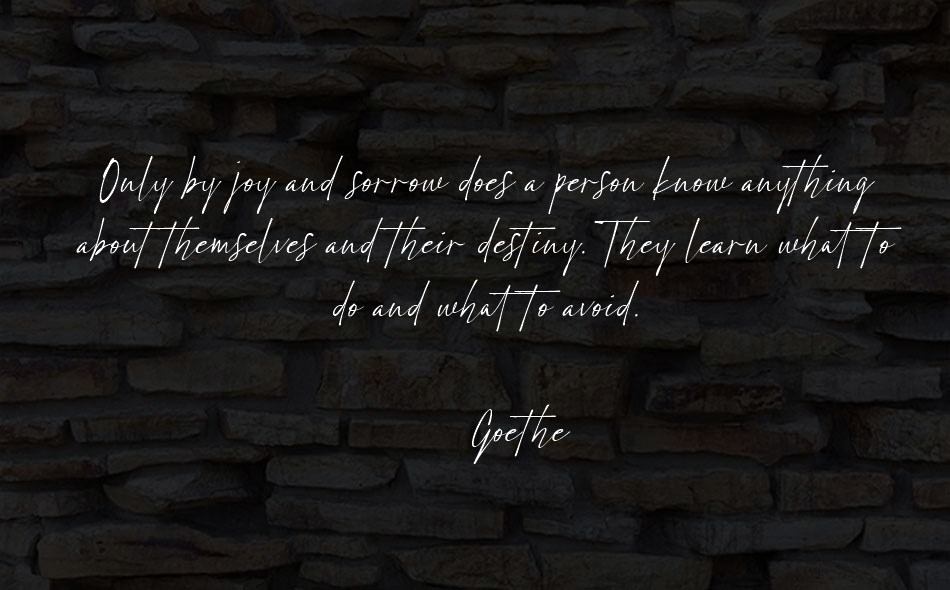 Only by joy and sorrow does a person know anything
about themselves and their destiny. They learn what to
do and what to avoid.
Goethe